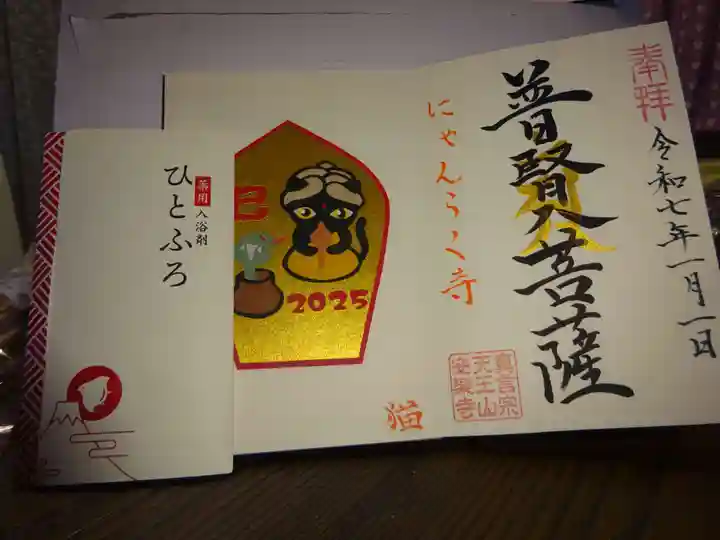 奉拝
令和七年一月一日
普賢菩薩
にゃんらく寺
真言宗
天王山
安楽寺
猫
巳
2025
薬用 入浴剤
ひとふろ